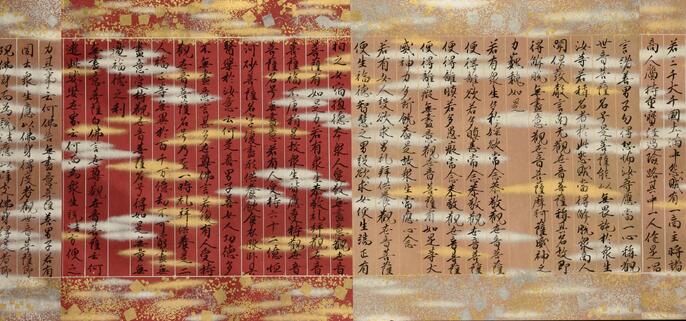 若三千大千國土滿中怨賊有一商主將諸
商人齎持重寶經過嶮路其中一人作是唱
言諸善男子勿得恐怖汝等應當一心稱觀
世音菩薩名号是菩薩能以無畏施於衆生
汝等若稱名者於此怨賊當得解脱衆商人
聞俱發聲言南無觀世音菩薩稱其名故即
得解脱無盡意觀世音菩薩摩訶薩威神之
力巍巍如是
若有衆生多於婬欲常念恭敬觀世音菩薩
便得離欲若多瞋恚常念恭敬觀世音菩薩
便得離瞋若多愚癡常念恭敬觀世音菩薩
便得離癡無盡意觀世音菩薩有如是等大
威神力多所饒益是故衆生常應心念
若有女人設欲求男礼拜供養觀世音菩薩
便生福德智慧之男設欲求女便生端正有
相之女宿殖德本衆人愛敬無盡意觀世音
菩薩有如是力若有衆生恭敬礼拜觀世音
菩薩福不唐捐是故衆生皆應受持觀世音
菩薩名号無盡意若有人受持六十二億恒
河沙菩薩名字復盡形供養飲食衣服臥具
醫藥於汝意云何是善男子善女人功德多
不無盡意言甚多世尊佛言若復有人受持
觀世音菩薩名号乃至一時礼拜供養是二
人福正等無異於百千万億劫不可窮盡無
盡意受持觀世音菩薩名号得如是無量無
邊福德之利
無盡意菩薩白佛言世尊觀世音菩薩云何
遊此娑婆世界云何而為衆生説法方便之
力其事云何佛告無盡意菩薩善男子若有
國土衆生應以佛身得度者觀世音菩薩即
現佛身而為説法應以辟支佛身得度者即